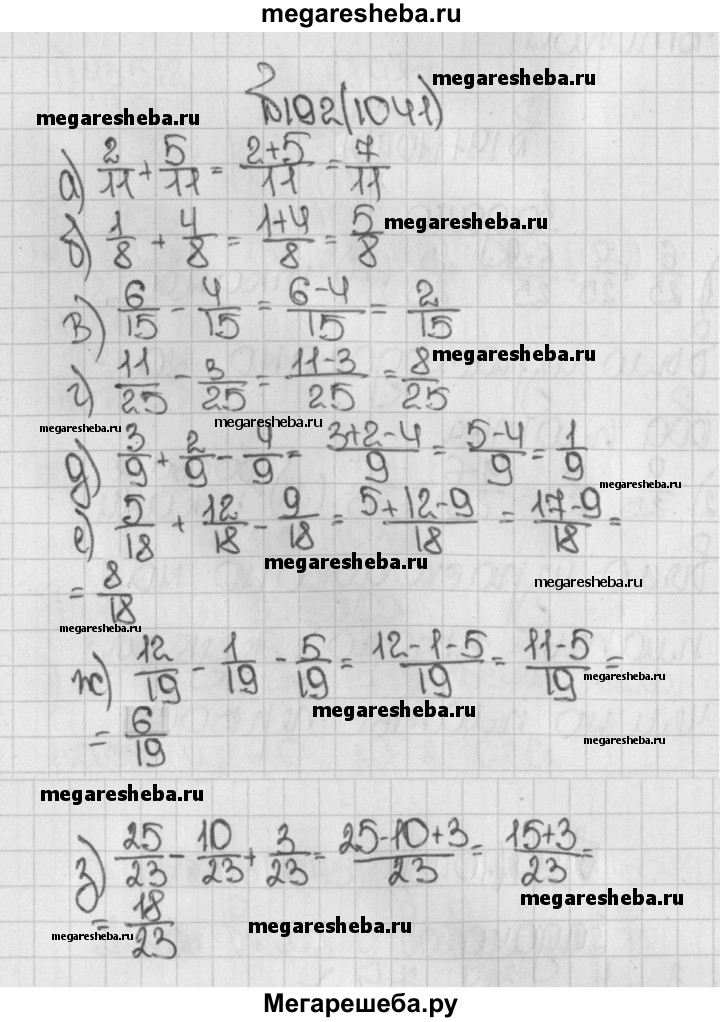 megaresheba.ru
megaresheba.ru
№192(1041)
megaresheba.ru
а) 2/11 + 5/11 = 2+5/11 = 7/11
б) 1/8 + 4/8 = 1+4/8 = 5/8
megaresheba.ru
в) 6/15 - 4/15 = 6-4/15 = 2/15
megaresheba.ru
г) 11/25 - 3/25 = 11-3/25 = 8/25
megaresheba.ru
megaresheba.ru
д) 3/9 + 2/9 - 4/9 = 3+2-4/9 = 5-4/9 = 1/9
megaresheba.ru
е) 5/18 + 12/18 - 9/18 = 5+12-9/18 = 17-9/18 =
megaresheba.ru
= 8/18
megaresheba.ru
megaresheba.ru
ж) 12/19 - 1/19 - 5/19 = 12-1-5/19 = 11-5/19 =
megaresheba.ru
megaresheba.ru
= 6/19
megaresheba.ru
megaresheba.ru
з) 25/23 - 10/23 + 3/23 = 25-10+3/23 = 15+3/23 =
megaresheba.ru
= 18/23
megaresheba.ru
megaresheba.ru
Мегарешеба.ру